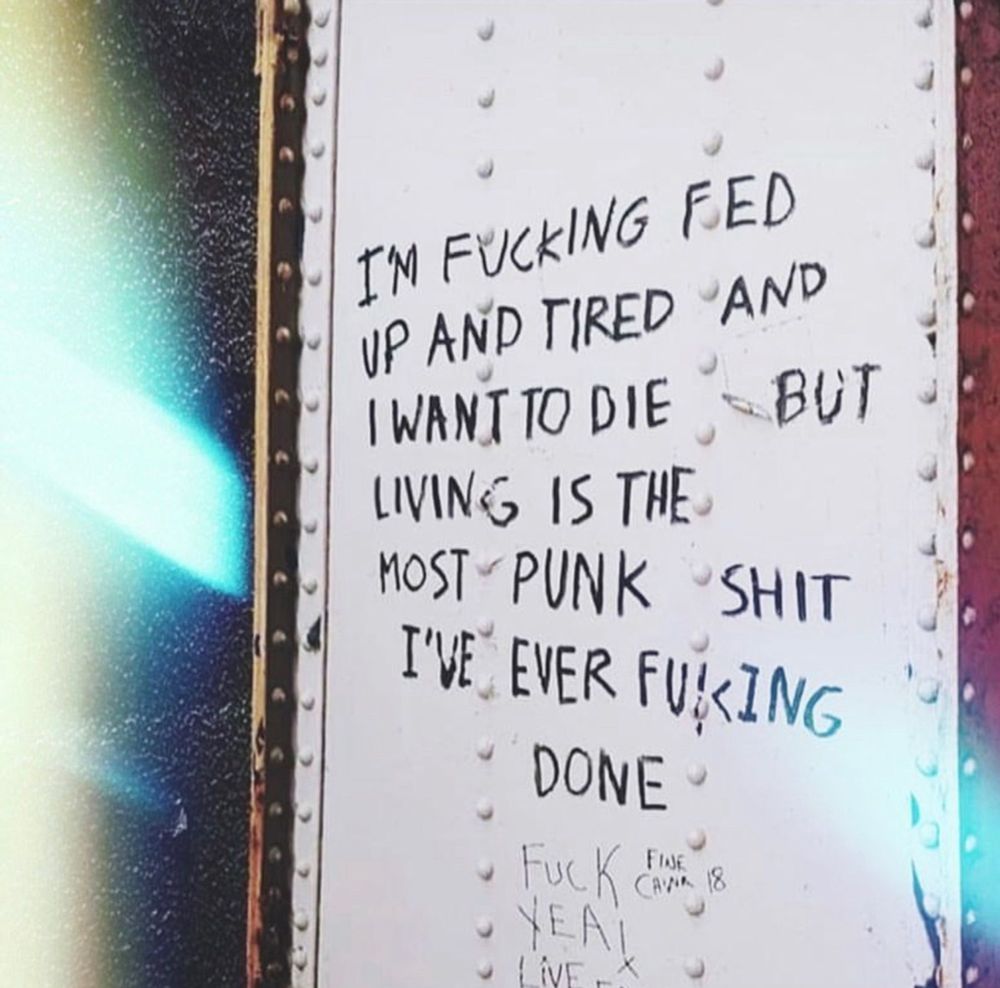 I'M FUCKING FED
UP AND TIRED AND
I WANT TO DIE BUT
LIVING IS THE
MOST PUNK SHIT
I'VE EVER FU!<ING
DONE
FUCK FINE
18
YEA!
LIVE